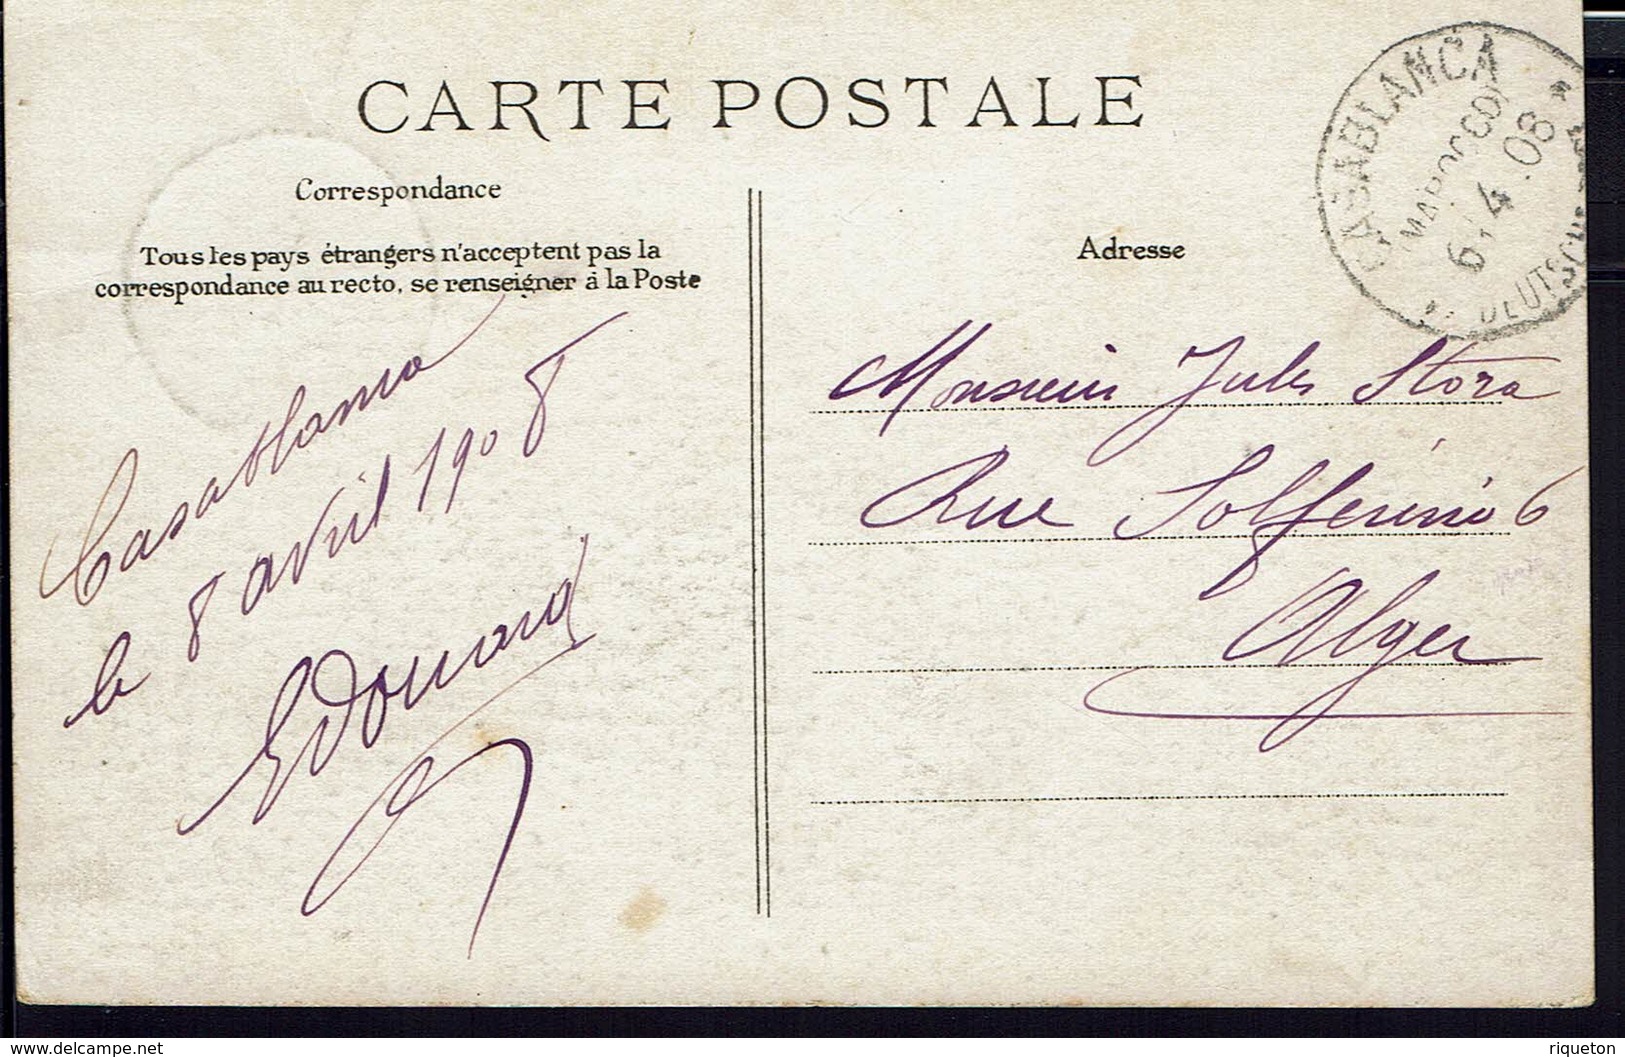 CARTE POSTALE
Correspondance
Tous les pays étrangers n'acceptent pas la
correspondance au recto, se renseigner à la Poste
Casablanca
le 8 avril 1908
Edouard
CASABLANCA
MAROCCO
6 4 08
DEUTSCHE
Adresse
Monsieur Jules Stora
Rue Solferino 6
Alger
delcampe.net
riqueton